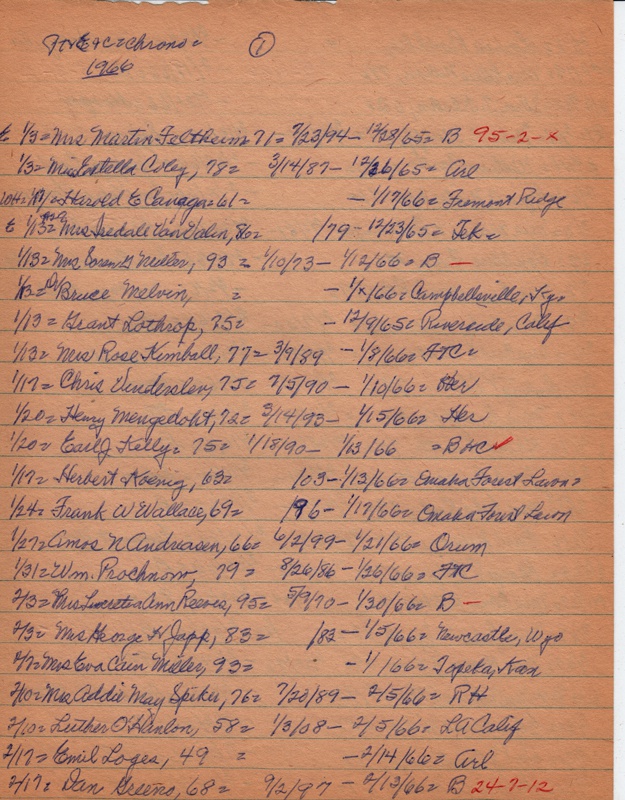 = Chrono = 1
1966
t 1/3 = Mrs Martin Feltheim 71 = 7/23/94 - 12/28/65 = B 95-2-x
1/3 = Miss Estella Coley, 78 = 3/14/87 - 12/26/65 = Arl
= Harold E Canaga = 61 = - 1/17/66 = Fremont Ridge
t 1/13 = Mrs Isedale Van Valin, 86 = /79 - 12/23/65 = Tek =
1/13 = Mrs Soren G Miller, 93 = 1/10/73 - 1/12/66 = B -
1/13 = Bruce Melvin, = - 1/x/66 = Campbellsville, Ky.
1/13 = Grant Lothrop, 75 = - 12/9/65 = Riverside, Calif
1/13 = Mrs Rose Kimball, 77 = 3/9/89 - 1/8/66 = FTC =
1/17 = Chris 75 = 7/5/90 - 1/10/66 = Her
1/20 = Henry Mengedoht, 72 = 3/14/93 - 1/15/66 = Her
1/20 = Earl J Kelly = 75 = 1/18/90 - 1/13/66 = BHC ✓
1/17 = Herbert Koenig, 63 = /03 - 1/13/66 = Omaha Forest Lawn =
1/24 = Frank W Wallace, 69 = /96 - 1/17/66 = Omaha Forest Lawn
1/27 = Amos N Andreasen, 66 = 6/2/99 - 1/21/66 = Orum
1/31 = Wm. Prochnow, 79 = 8/26/86 - 1/26/66 = FTC
2/3 = Mrs Lucretia Ann Reeves, 95 = 5/9/70 - 1/30/66 = B -
2/3 = Mrs George H Japp, 83 = /82 - 1/5/66 = Newcastle, Wyo
2/7 = Mrs Eva Cain Miller, 93 = - 1/ /66 = Topeka, Kan
2/10 = Mrs Addie May Spiker, 76 = 7/20/89 - 2/5/66 = RH
2/10 = Luther O'Hanlon, 58 = 1/3/08 - 2/5/66 = LA Calif
2/17 = Emil Loges, 49 = - 2/14/66 = Arl
2/17 = Dan 68 = 9/2/97 - 2/13/66 = B 24-7-12